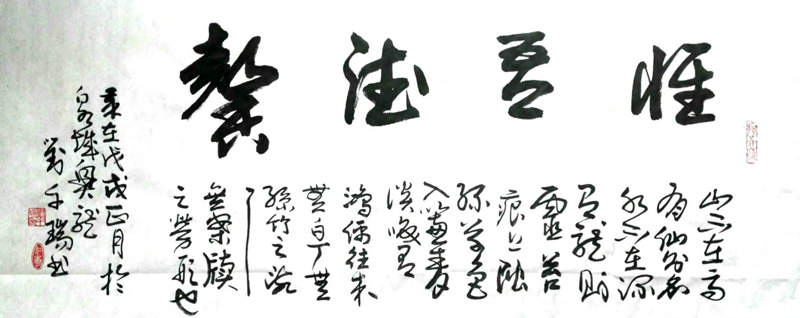 惟吾德馨
山不在高
有仙則名
水不在深
有龍則
靈苔
痕上階
綠草色
入簾青
談笑有
鴻儒往來
無白丁無
絲竹之亂
耳
無案牘
之勞形也
在戊戌正月於
泉城奥
千瑞书